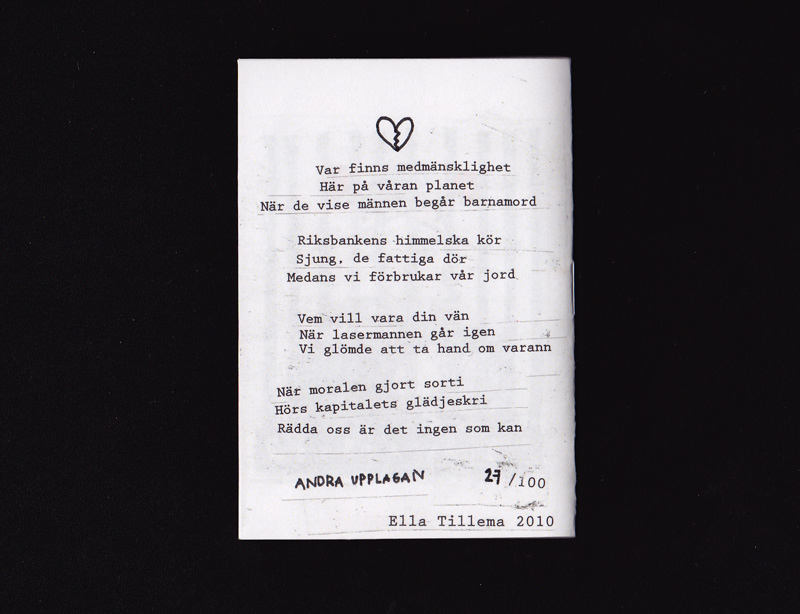 Var finns medmänsklighet
Här på våran planet
När de vise männen begår barnamord
Riksbankens himmelska kör
Sjung, de fattiga dör
Medans vi förbrukar vår jord
Vem vill vara din vän
När lasermannen går igen
Vi glömde att ta hand om varann
När moralen gjort sorti
Hörs kapitalets glädjeskri
Rädda oss är det ingen som kan
ANDRA UPPLAGAN 27/100
Ella Tillema 2010